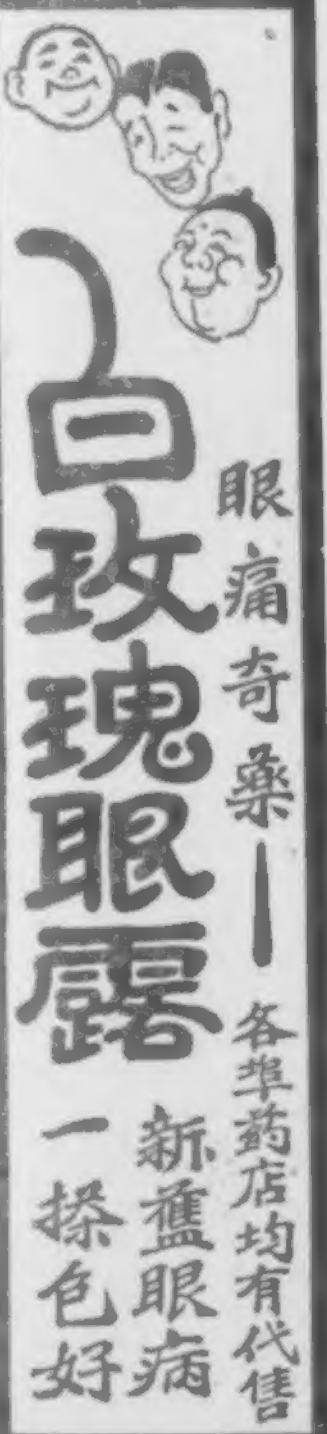 眼痛奇藥—各埠葯店均有代售
白玫瑰眼露
新舊眼病
一搽包好